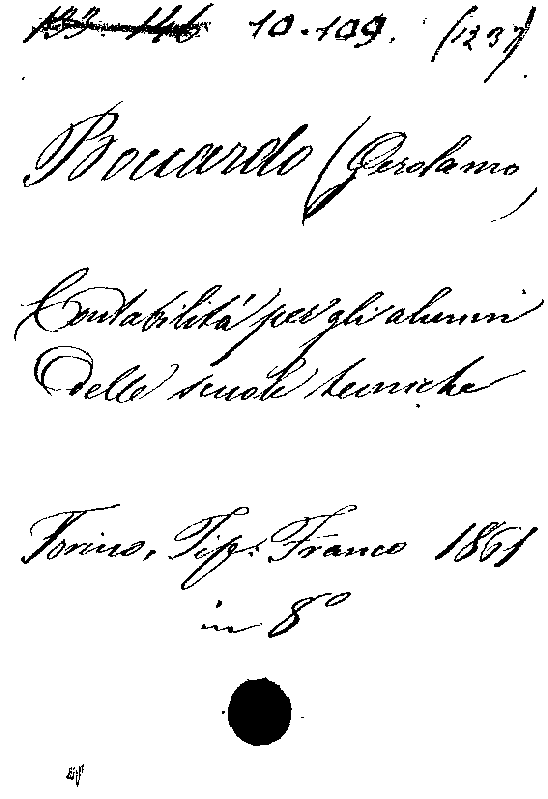 133. 146 10.109. (1237)
Boccardo (Gerolamo)
Contabilità per gli alunni
Delle scuole tecniche
Torino, Tip: Franco 1861
in 8º